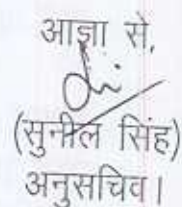 आज्ञा से,
(सुनील सिंह)
अनुसचिव।